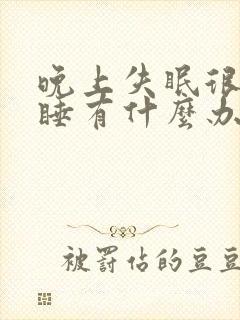 晚上失眠很
睡有什麼办
被罰佔的豆豆